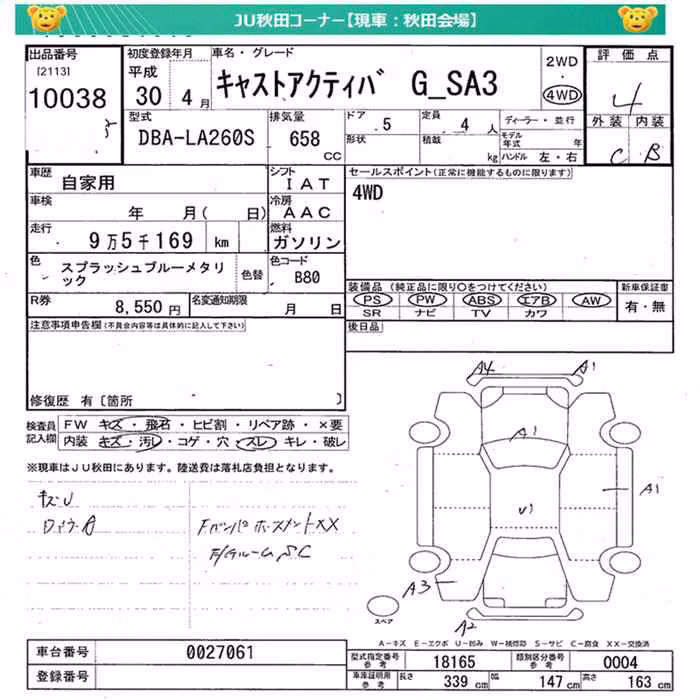 JU秋田コーナー【現車：秋田会場】
出品番号
[2113]
10038
初度登録年月
平成
30 年 4 月
車名・グレード
キャストアクティバ G_SA3
2WD
：
4WD
評価点
4
外装 内装
C B
型式
DBA-LA260S
排気量
658
CC
ドア
5
定員
4 人
ディーラー・並行
形状
積載
kg
モデル年式 年
ハンドル 左・右
車歴
自家用
シフト
IAT
セールスポイント(正常に機能するものに限ります)
4WD
車検
年 月( 日)
冷房
AAC
走行
9万5千169 km
燃料
ガソリン
色
スプラッシュブルーメタリック
色替
色コード
B80
R券
8,550 円
名変通知期限
月 日
装備品 (純正品に限り○をつけてください)
PS PW ABS エアB AW
SR ナビ TV カワ
新車保証書
有・無
後日品
注意事項申告欄(不具合内容等は具体的に記入して下さい)
修復歴 有〔箇所 〕
検査員記入欄
FW キズ・飛石・ヒビ割・リペア跡・×要
内装 キズ・汚レ・コゲ・穴・スレ・キレ・破レ
※現車はJU秋田にあります。陸送費は落札店負担となります。
キズU
FバンパホースメントXX
A4
A1
A1
A1
U1
A3
A2
スペア
A-キズ E-エクボ U-凹み W-補修跡 S-サビ C-腐食 XX-交換済
車台番号
0027061
登録番号
型式指定番号
参考
18165
類別区分番号
参考
0004
車庫証明用
参考
長さ
339 cm
幅
147 cm
高さ
163 cm